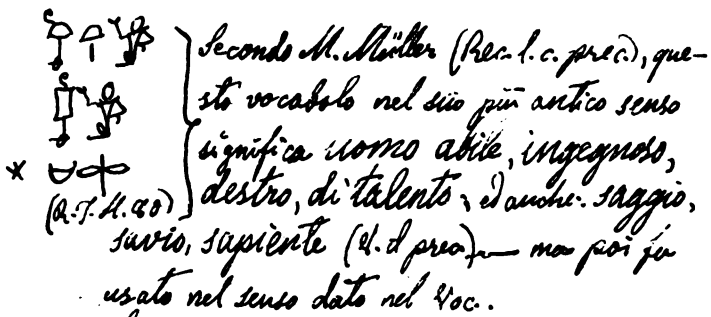 Secondo M. Müller (Rec. l. c. prec.), que-
sto vocabolo nel suo più antico senso
significa uomo abile, ingegnoso,
destro, di talento; ed anche: saggio,
(R. J. H. 80)
savio, sapiente (l. d prec) — ma poi fu
usato nel senso dato nel Voc.